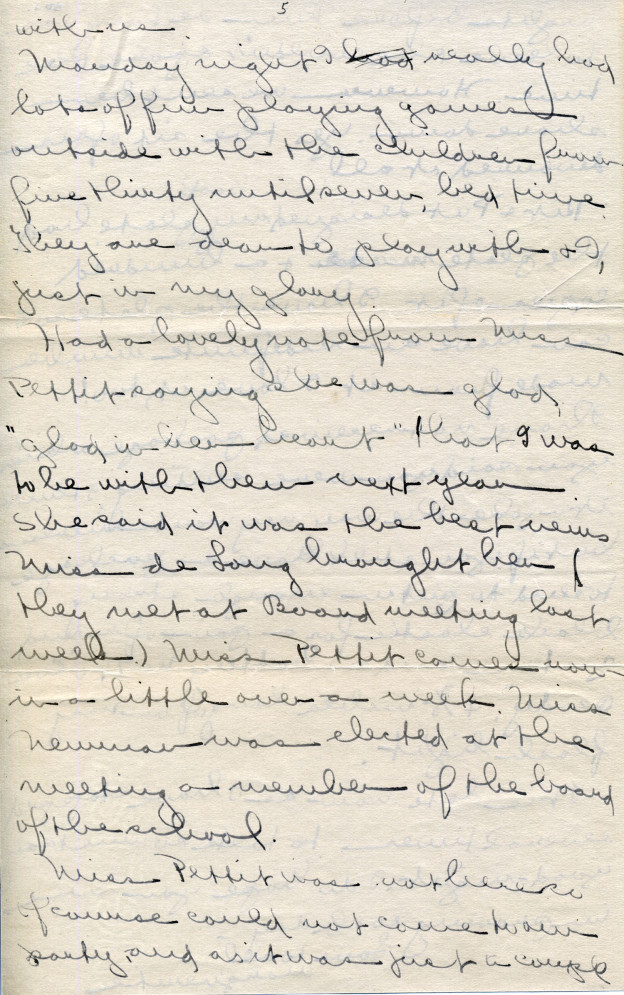 5
with us.
Monday night I had really had
lots of fun playing games
outside with the children from
five thirty until seven, bed time.
They are dear to play with & I,
just in my glory.
Had a lovely note from Miss
Pettit saying she was glad,
"glad in her heart" that I was
to be with them next year
She said it was the best news
Miss de Long brought her (
they met at Board meeting last
week.) Miss Pettit comes now
in a little over a week. Miss
Newman was elected at the
meeting a member of the board
of the school.
Miss Pettit was not here so
of course could not come to our
party, and as it was just a couple